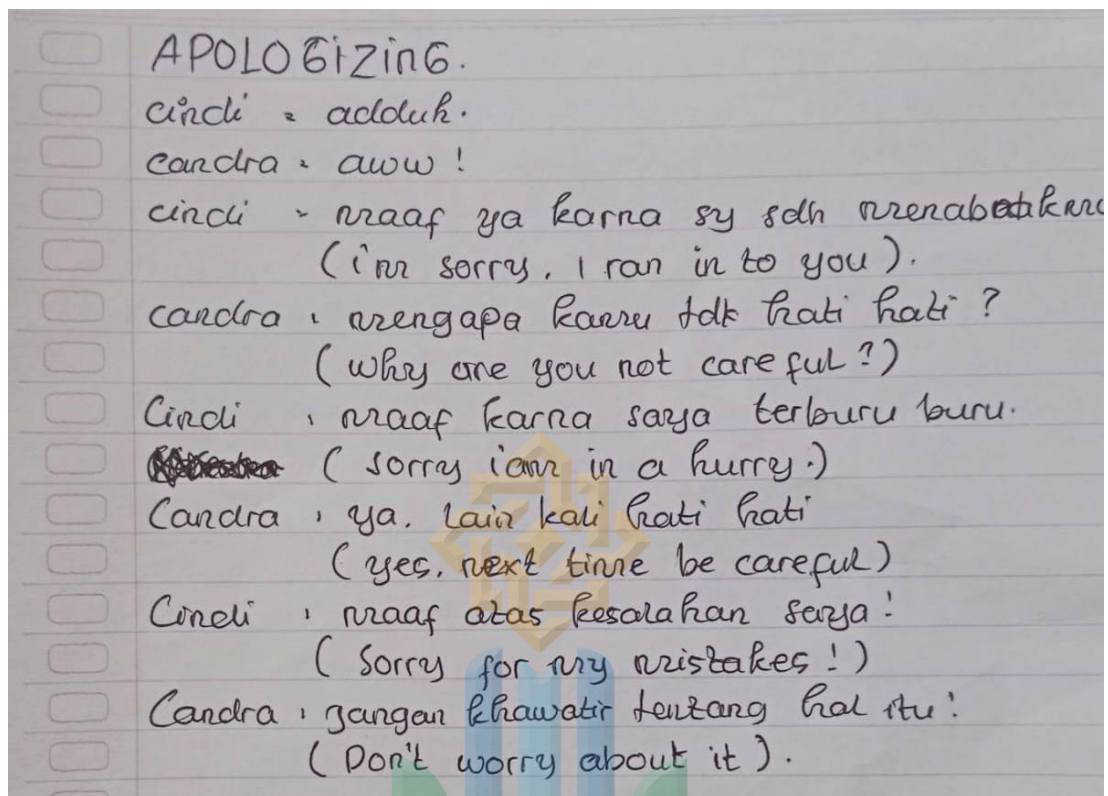 APOLOGizinG.
cindi : adduh.
candra : aww !
cindi : maaf ya karna sy sdh
(i'm sorry, I ran in to you).
candra : mengapa kamu tdk hati hati ?
(why are you not careful ?)
Cindi : maaf karna saya terburu buru.
(sorry iam in a hurry.)
Candra : ya. Lain kali hati hati
(yes, next time be careful)
Cindi : maaf atas kesalahan saya !
(Sorry for my mistakes !)
Candra : jangan khawatir tentang hal itu !
(Don't worry about it).